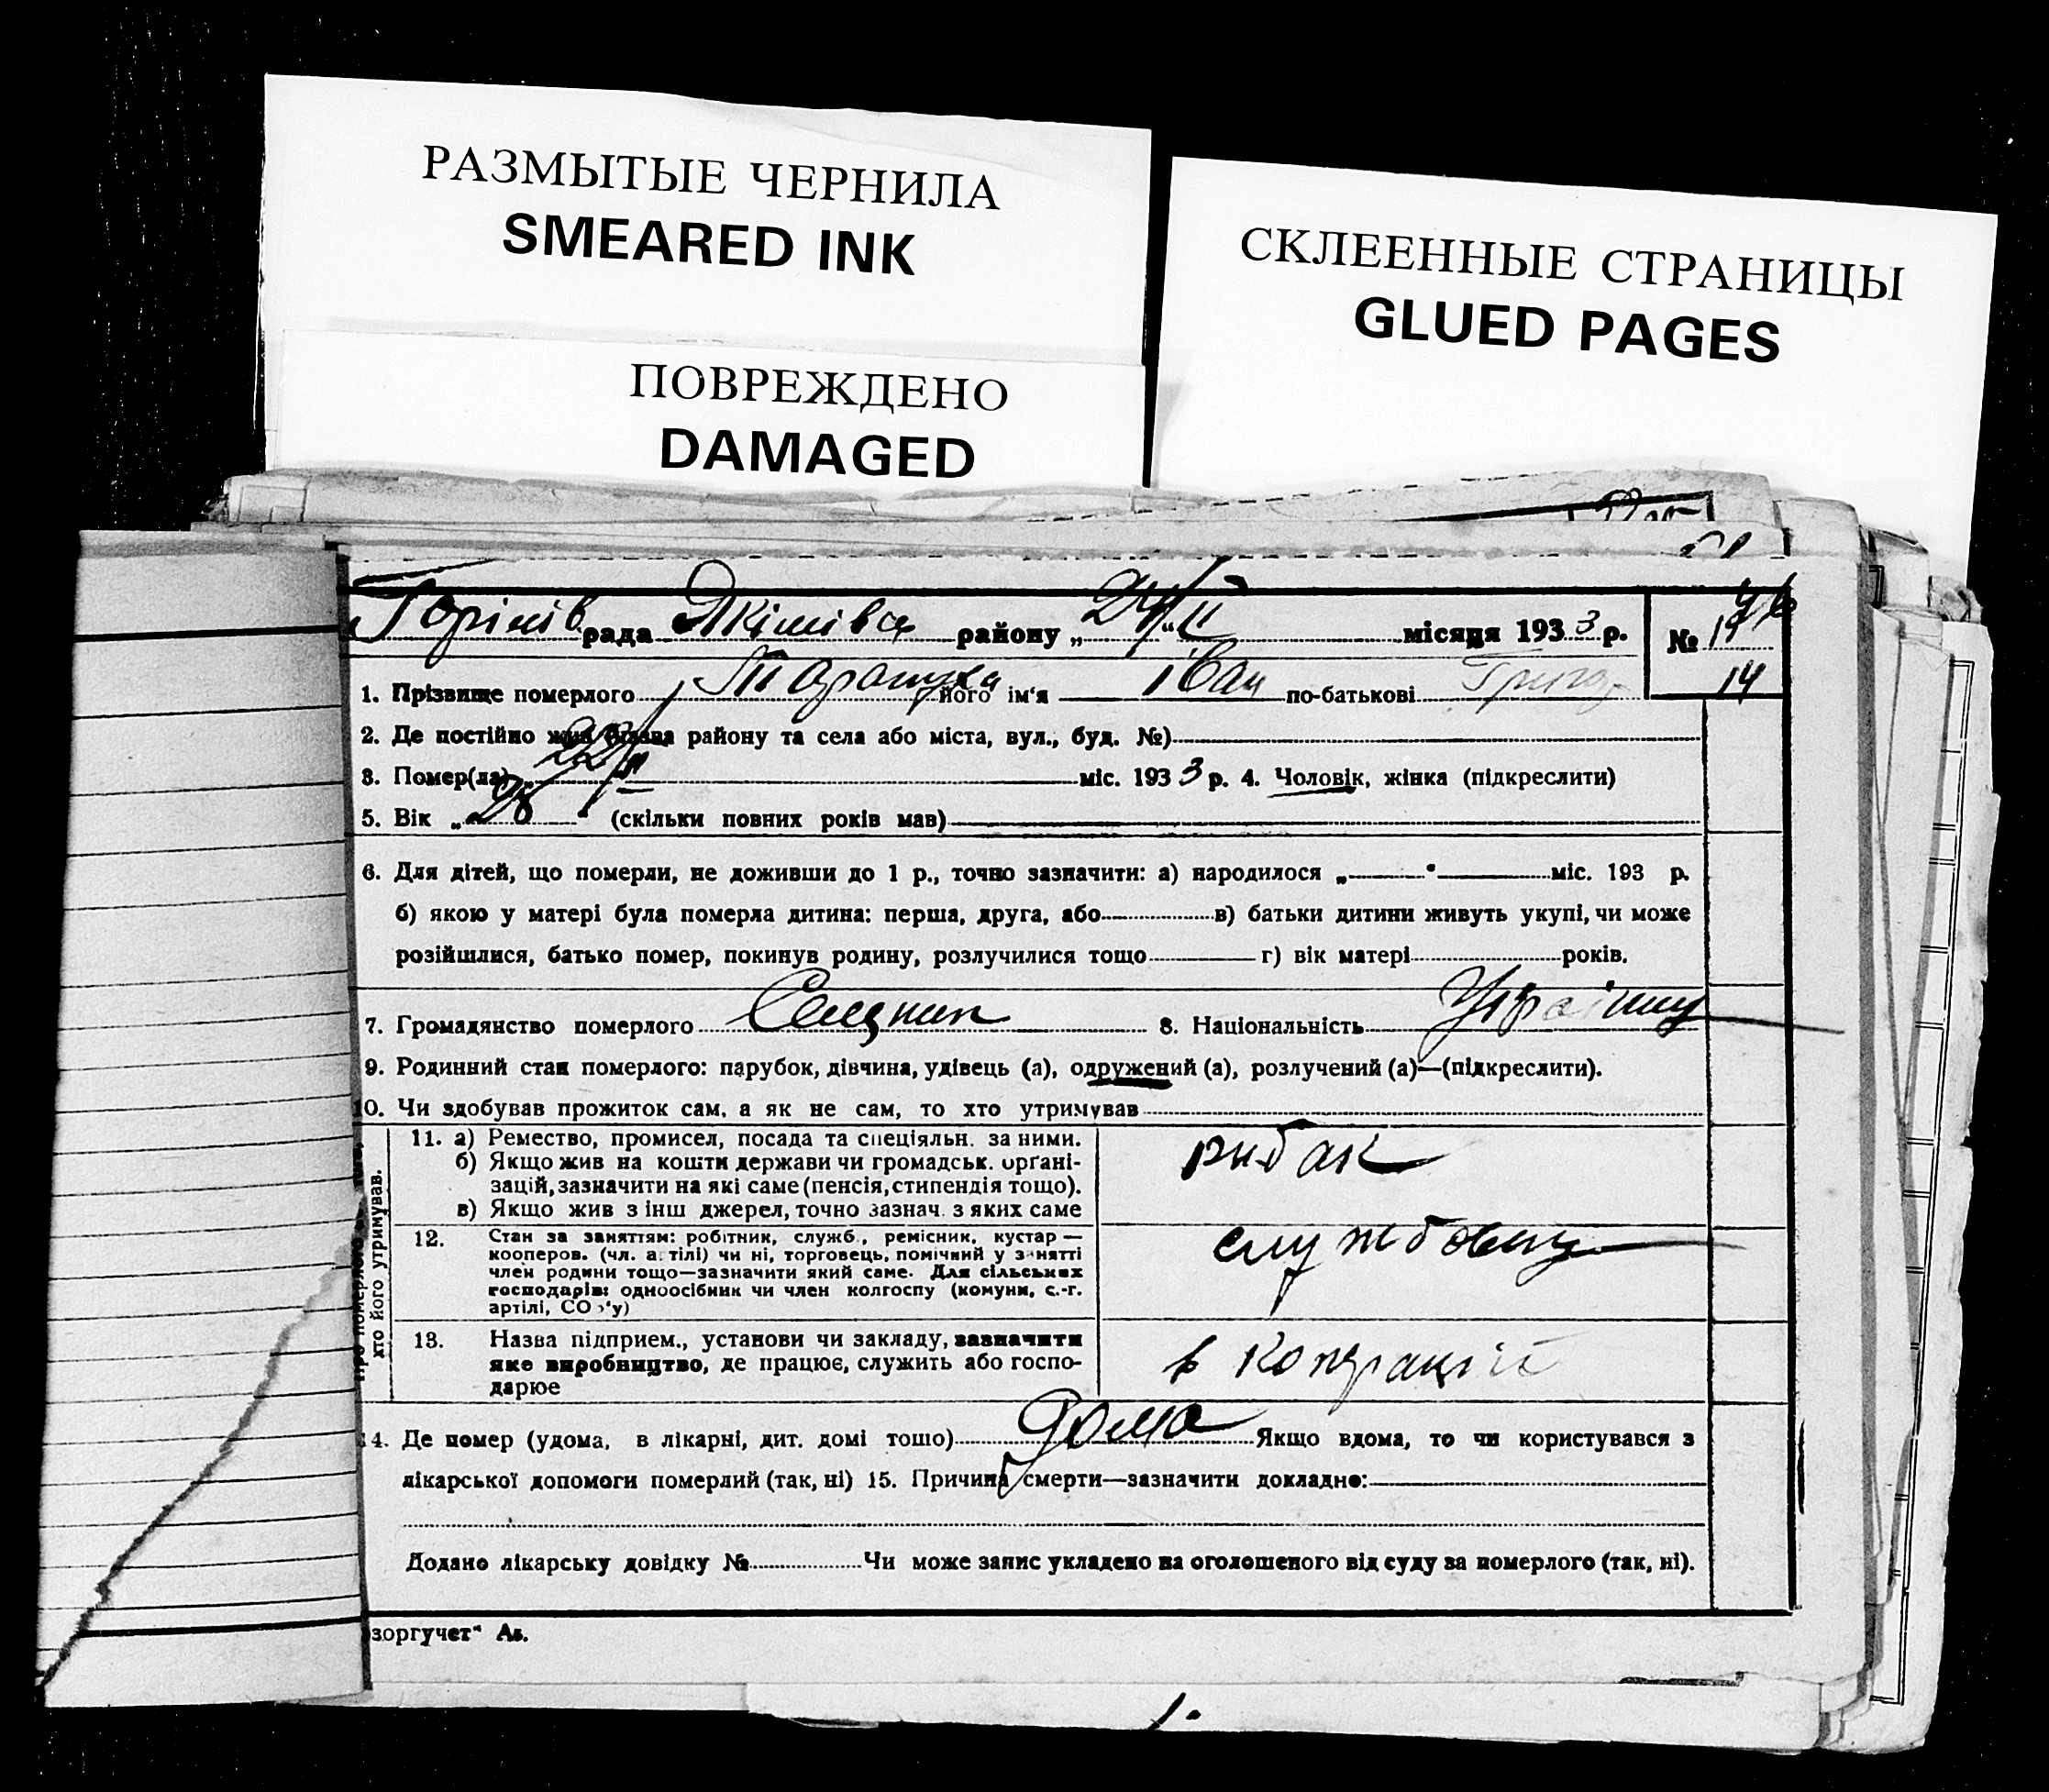 РАЗМЫТЫЕ ЧЕРНИЛА
SMEARED INK
ПОВРЕЖДЕНО
DAMAGED
СКЛЕЕННЫЕ СТРАНИЦЫ
GLUED PAGES
Горінів рада Якімівсь району „24/II“ місяця 1933 р. №
14
1. Прізвище померлого його ім'я Іван по-батькові Григор
2. Де постійно жив (назва району та села або міста, вул., буд. №)
3. Помер(ла) „22/II міс. 1933 р. 4. Чоловік, жінка (підкреслити)
5. Вік „28“ (скільки повних років мав)
6. Для дітей, що померли, не доживши до 1 р., точно зазначити: а) народилося „ “ міс. 193 р.
б) якою у матері була померла дитина: перша, друга, або в) батьки дитини живуть укупі, чи може
розійшлися, батько помер, покинув родину, розлучилися тощо г) вік матері років.
7. Громадянство померлого 8. Національність
9. Родинний стан померлого: парубок, дівчина, удівець (а), одружений (а), розлучений (а)—(підкреслити).
10. Чи здобував прожиток сам, а як не сам, то хто утримував
хто його утримував.
11. а) Ремество, промисел, посада та спеціяльн. за ними.
б) Якщо жив на кошти держави чи громадськ. органі-
зацій, зазначити на які саме (пенсія, стипендія тощо).
в) Якщо жив з інш джерел, точно зазнач. з яких саме
рибак
12. Стан за заняттям: робітник, служб., ремісник, кустар —
кооперов. (чл. артілі) чи ні, торговець, помічний у занятті
член родини тощо—зазначити який саме. Для сільських
господарів: одноосібник чи член колгоспу (комуни, с.-г.
артілі, СО у)
службовец
13. Назва підприєм., установи чи закладу, зазначити
яке виробництво, де працює, служить або госпо-
дарює
в
14. Де помер (удома, в лікарні, дит. домі тощо) Дома Якщо вдома, то чи користувався з
лікарської допомоги померлий (так, ні) 15. Причина смерти—зазначити докладно:
Додано лікарську довідку № Чи може запис укладено на оголошеного від суду за померлого (так, ні).
зоргучет“ Ав.